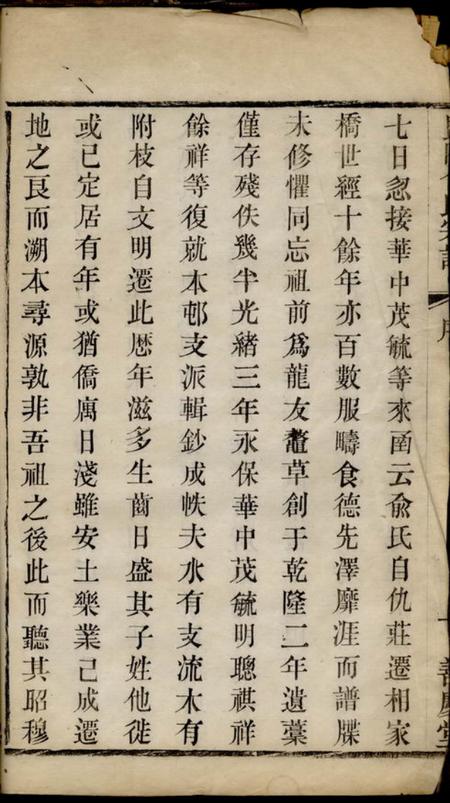 七日忽接華中茂毓等來函云俞氏自仇莊遷相家
橋世經十餘年亦百數服疇食德先澤靡涯而譜牒
未修懼同忘祖前爲龍友鼇草創于乾隆二年遺藁
僅存殘佚幾半光緒三年永保華中茂毓明聰祺祥
餘祥等復就本邨支派輯鈔成帙夫水有支流木有
附枝自文明遷此厯年滋多生齒日盛其子姓他徙
或已定居有年或猶僑寓日淺雖安土樂業已成遷
地之良而溯本尋源孰非吾祖之後此而聽其昭穆